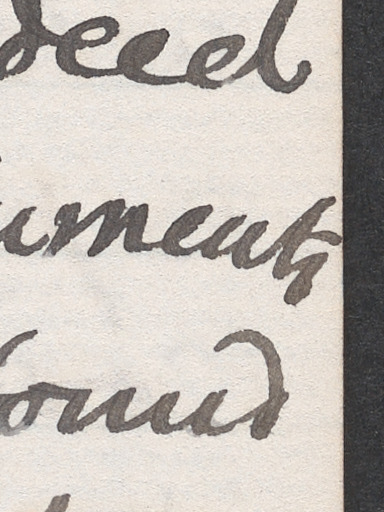 deed
uments
found